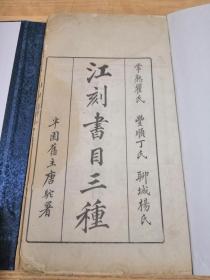 常熟瞿氏　豐順丁氏　聊城楊氏
江刻書目三種
半園舊主唐駝署